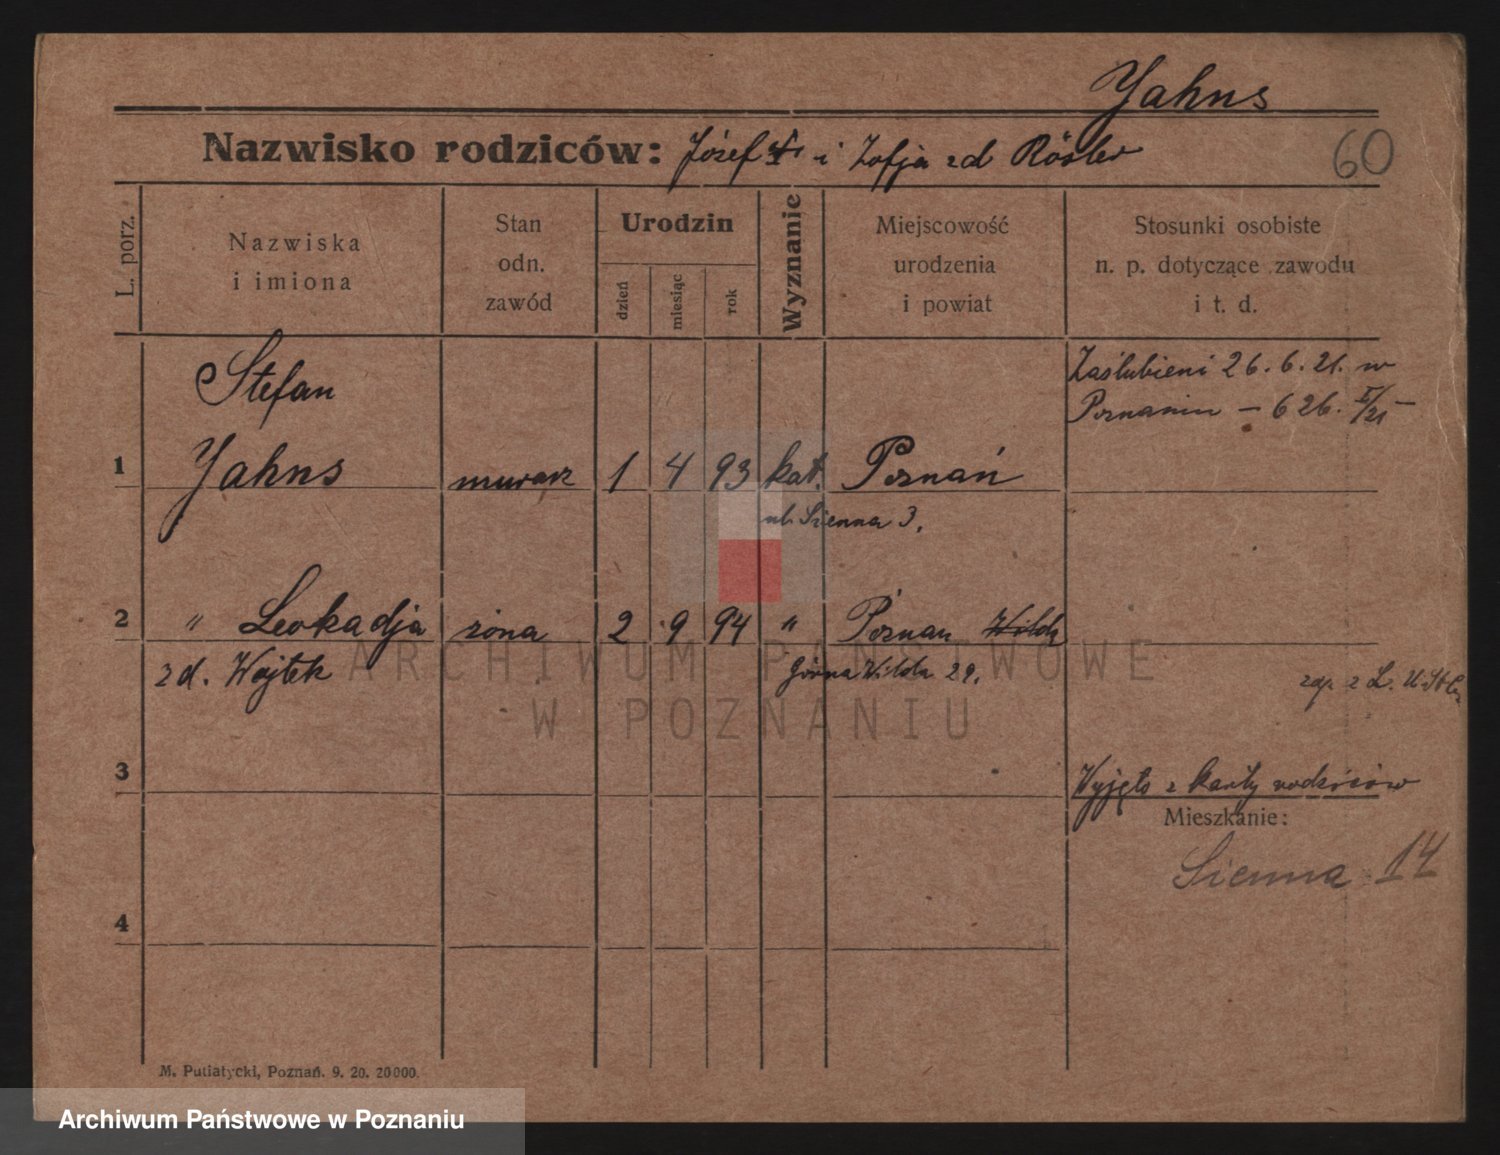 Yahns
Nazwisko rodziców: Józef i Zofja zd Rösler
60
L. porz.
Nazwiska
i imiona
Stan
odn.
zawód
Urodzin
dzień
miesiąc
rok
Wyznanie
Miejscowość
urodzenia
i powiat
Stosunki osobiste
n. p. dotyczące zawodu
i t. d.
Zaślubieni 26. 6. 21. w
Poznaniu — 626. I/21 —
Stefan
1 Yahns murarz 1 4 93 kat. Poznań
ul. Sienna 3.
2 " Leokadja żona 2 9 94 " Poznań Wilda
zd. Wojtek Górna Wilda 29.
zap. z L. U. St.
3 Wyjęto z karty rodziców
Mieszkanie:
Sienna 14
4
M. Putiatycki, Poznań. 9. 20. 20000.
ARCHIWUM PAŃSTWOWE
W POZNANIU
Archiwum Państwowe w Poznaniu